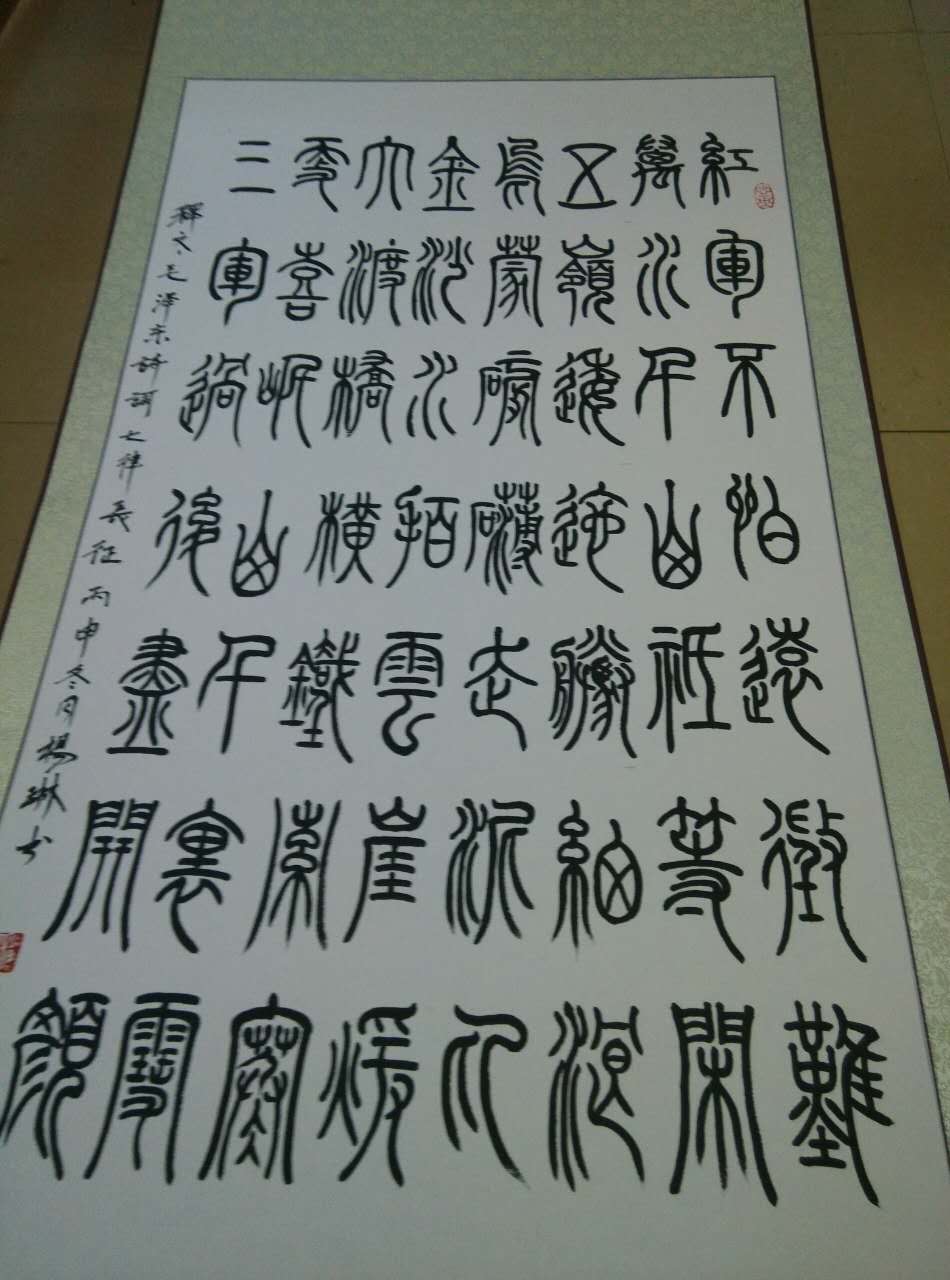 紅軍不怕遠徵難
萬水千山祇等閑
五嶺逶迤騰細浪
烏蒙磅礴走泥丸
金沙水拍雲崖暖
大渡橋橫鐵索寒
更喜岷山千裏雪
三軍過後盡開顏
释文:毛泽东诗词七律长征丙申冬月楊琳书